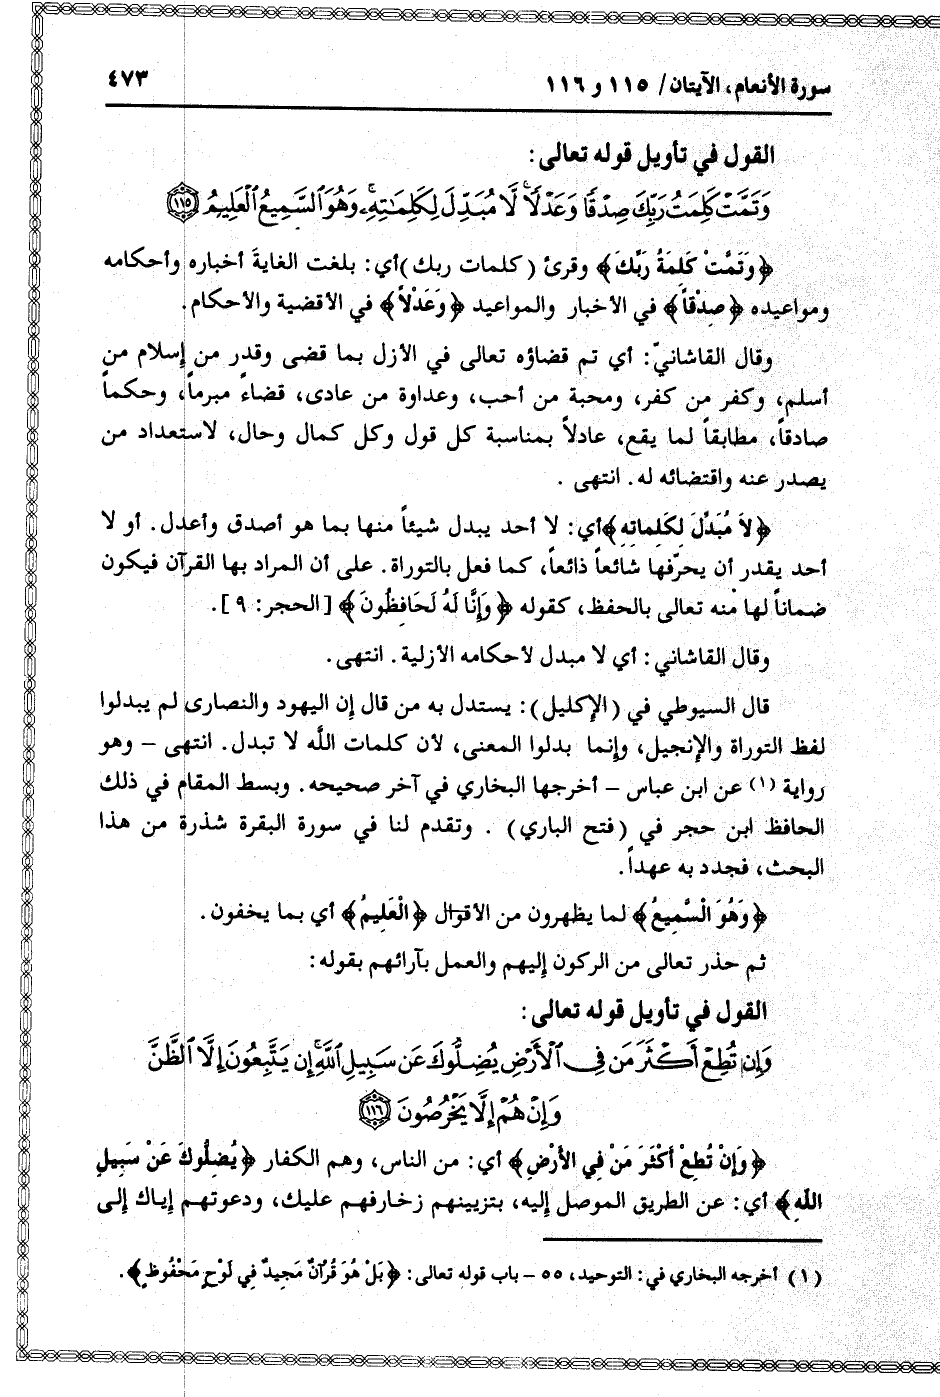 سورة الأنعام، الآيتان/ ١١٥ و ١١٦
٤٧٣
القول في تأويل قوله تعالى:
وَتَمَّتْ كَلِمَتُ رَبِّكَ صِدْقًا وَعَدْلًا ۚ لَّا مُبَدِّلَ لِكَلِمَٰتِهِۦ ۚ وَهُوَ ٱلسَّمِيعُ ٱلْعَلِيمُ ١١٥
﴿وَتَمَّتْ كَلِمَةُ رَبِّكَ﴾ وقرئ (كلمات ربك) أي: بلغت الغايةَ أخباره وأحكامه
ومواعيده ﴿صِدْقاً﴾ في الأخبار والمواعيد ﴿وَعَدْلاً﴾ في الأقضية والأحكام.
وقال القاشانيّ: أي تم قضاؤه تعالى في الأزل بما قضى وقدر من إسلام من
أسلم، وكفر من كفر، ومحبة من أحب، وعداوة من عادى، قضاءً مبرماً، وحكماً
صادقاً، مطابقاً لما يقع، عادلاً بمناسبة كل قول وكل كمال وحال، لاستعداد من
يصدر عنه واقتضائه له. انتهى.
﴿لاَ مُبَدِّلَ لِكَلِمَاتِهِ﴾ أي: لا أحد يبدل شيئاً منها بما هو أصدق وأعدل. أو لا
أحد يقدر أن يحرّفها شائعاً ذائعاً، كما فعل بالتوراة. على أن المراد بها القرآن فيكون
ضماناً لها منه تعالى بالحفظ، كقوله ﴿وَإِنَّا لَهُ لَحَافِظُونَ﴾ [الحجر: ٩].
وقال القاشاني: أي لا مبدل لأحكامه الأزلية. انتهى.
قال السيوطي في (الإكليل): يستدل به من قال إن اليهود والنصارى لم يبدلوا
لفظ التوراة والإنجيل، وإنما بدلوا المعنى، لأن كلمات اللَّه لا تبدل. انتهى – وهو
رواية (١) عن ابن عباس – أخرجها البخاري في آخر صحيحه. وبسط المقام في ذلك
الحافظ ابن حجر في (فتح الباري) . وتقدم لنا في سورة البقرة شذرة من هذا
البحث، فجدد به عهداً.
﴿وَهُوَ السَّمِيعُ﴾ لما يظهرون من الأقوال ﴿الْعَلِيمُ﴾ أي بما يخفون.
ثم حذر تعالى من الركون إليهم والعمل بآرائهم بقوله:
القول في تأويل قوله تعالى:
وَإِن تُطِعْ أَكْثَرَ مَن فِى ٱلْأَرْضِ يُضِلُّوكَ عَن سَبِيلِ ٱللَّهِ ۚ إِن يَتَّبِعُونَ إِلَّا ٱلظَّنَّ
وَإِنْ هُمْ إِلَّا يَخْرُصُونَ ١١٦
﴿وَإِنْ تُطِعْ أَكْثَرَ مَنْ فِي الأَرْضِ﴾ أي: من الناس، وهم الكفار ﴿يُضِلُّوكَ عَنْ سَبِيلِ
اللَّهِ﴾ أي: عن الطريق الموصل إليه، بتزيينهم زخارفهم عليك، ودعوتهم إياك إلى
(١) أخرجه البخاري في: التوحيد، ٥٥ – باب قوله تعالى: ﴿بَلْ هُوَ قُرْآنٌ مَجِيدٌ فِي لَوْحٍ مَحْفُوظٍ﴾.